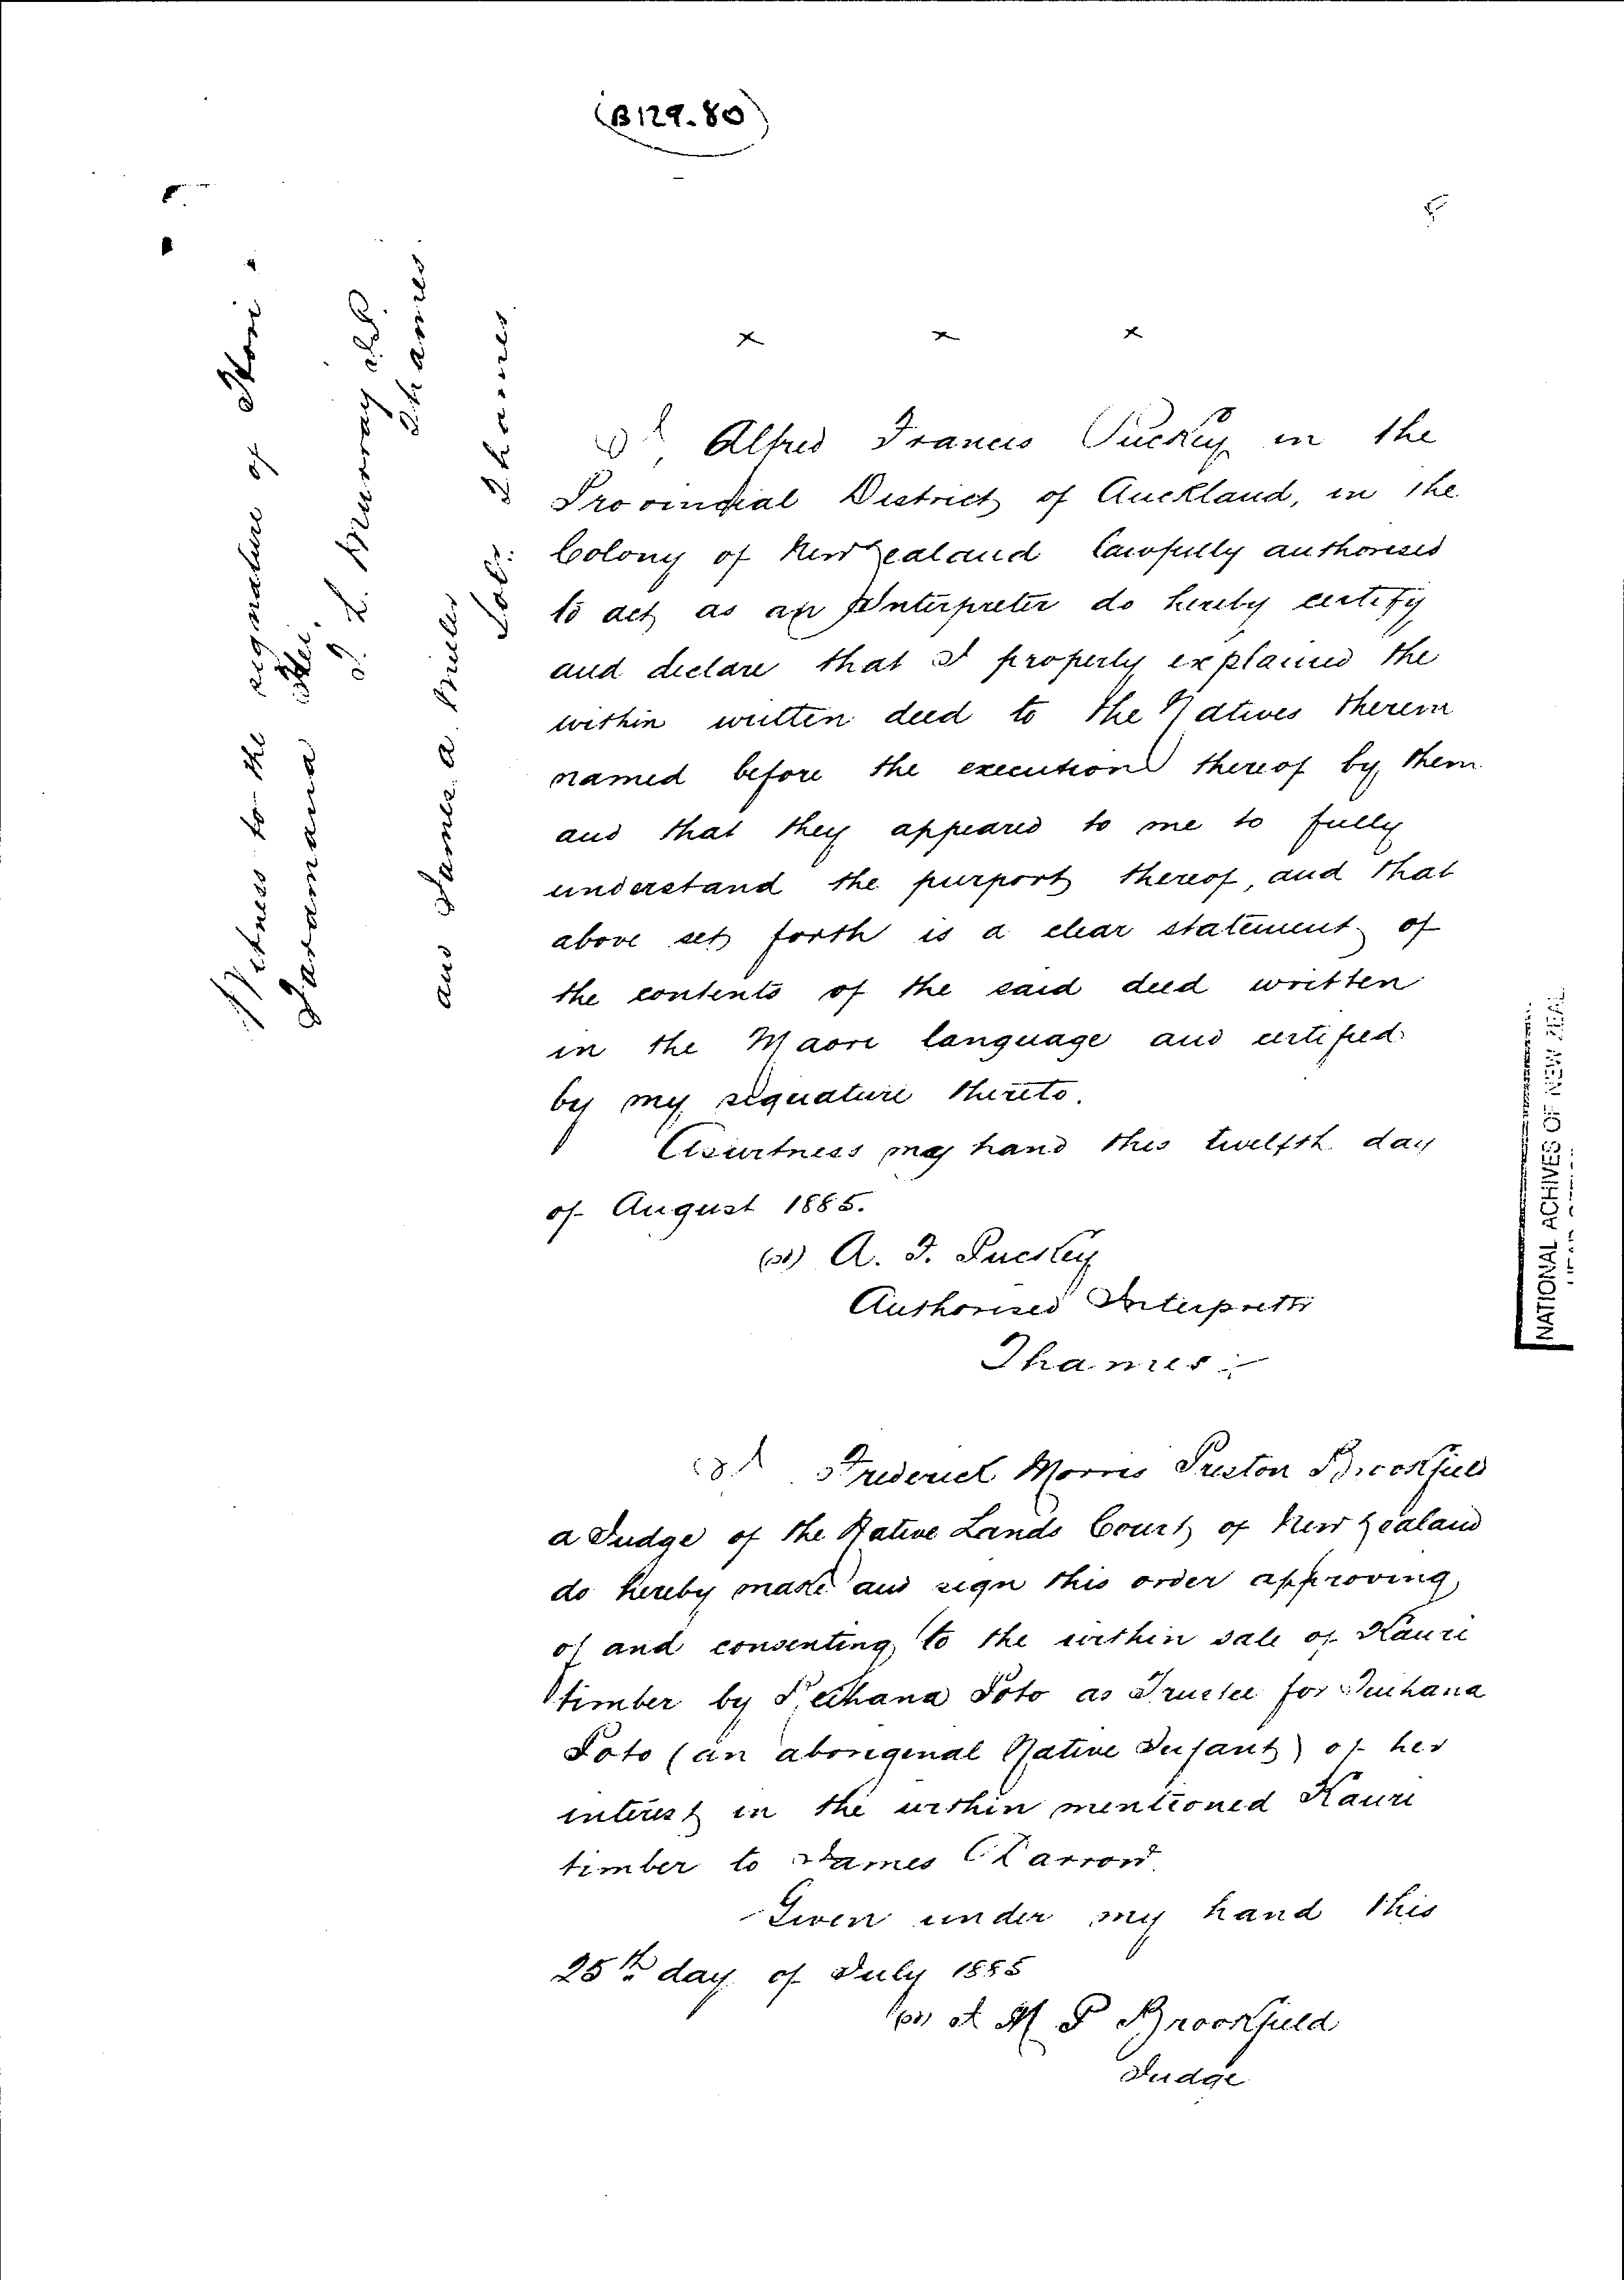 (B129.80)
Witness to the signature of Hori
Taramana
J. L. Murray J.P.
Thames.
and James A Miller
Sol: Thames.
x x x
I, Alfred Francis Puckey, in the
Provincial District of Auckland, in the
Colony of New Zealand lawfully authorised
to act as an Interpreter do hereby certify
and declare that I properly explained the
within written deed to the Natives therein
named before the execution thereof by them
and that they appeared to me to fully
understand the purport thereof, and that
above set forth is a clear statement of
the contents of the said deed written
in the Maori language and certified
by my signature thereto.
As witness my hand this twelfth day
of August 1885.
(sd) A. F. Puckey
Authorised Interpreter
Thames.
I Frederick Morris Preston Brookfield
a Judge of the Native Lands Court of New Zealand
do hereby make and sign this order approving
of and consenting to the within sale of Kauri
timber by Reihana Poto as Trustee for
Poto (an aboriginal Native Infant) of her
interest in the within mentioned Kauri
timber to James
Given under my hand this
25th day of July 1885
(sd) F M P Brookfield
Judge
NATIONAL ACHIVES OF NEW ZEAL